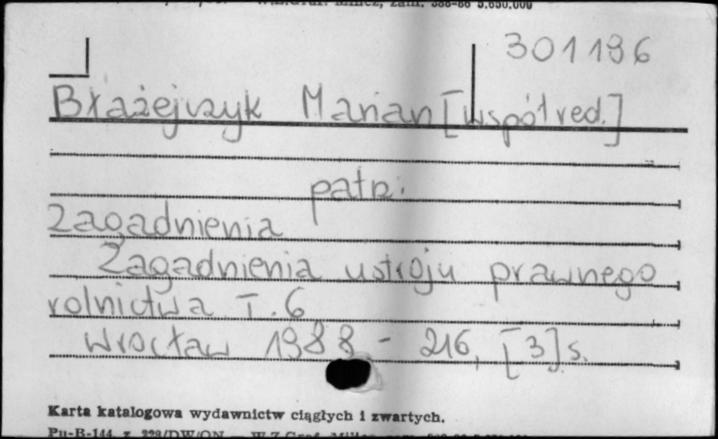 301196
Błażejczyk Marian [współred.]
patrz:
Zagadnienia
Zagadnienia ustroju prawnego
rolnictwa T. 6
Wrocław 1988 - 216, [3] s.
Karta katalogowa wydawnictw ciągłych i zwartych.